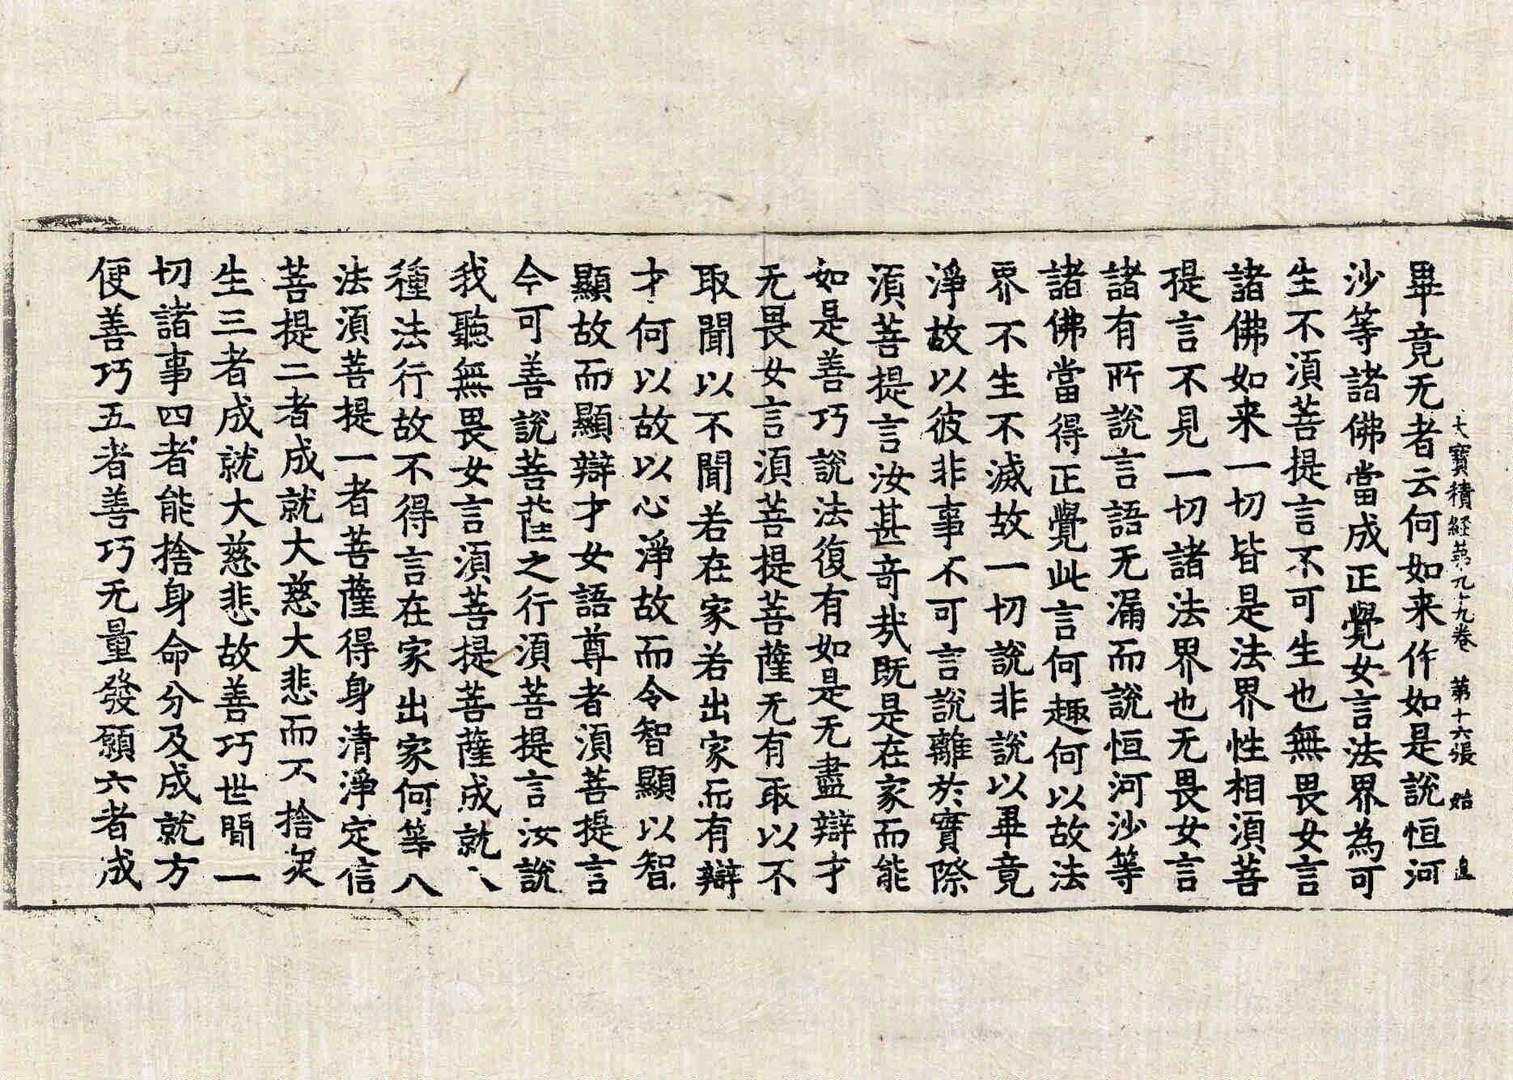 大寳積経苐九十九卷 苐十六張 始
畢竟无者云何如来作如是說恒河
沙等諸佛當成正覺女言法界為可
生不須菩提言不可生也無畏女言
諸佛如来一切皆是法界性相須菩
提言不見一切諸法界也无畏女言
諸有所說言語无漏而說恒河沙等
諸佛當得正覺此言何趣何以故法
界不生不滅故一切說非說以畢竟
淨故以彼非事不可言說離於實際
須菩提言汝甚竒㢤既是在家而能
如是善巧說法復有如是无盡辯才
无畏女言須菩提菩薩无有取以不
取聞以不聞若在家若出家而有辯
才何以故以心淨故而令智顯以智
顯故而顯辯才女語尊者須菩提言
今可善說菩薩之行須菩提言汝說
我聽無畏女言須菩提菩薩成就八
種法行故不得言在家出家何等八
法須菩提一者菩薩得身清淨定信
菩提二者成就大慈大悲而不捨衆
生三者成就大慈悲故善巧世間一
切諸事四者能捨身命分及成就方
便善巧五者善巧无量發願六者成